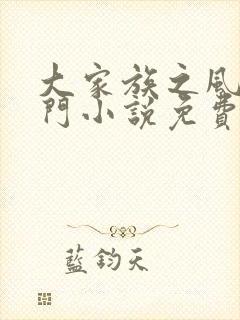 大家族之風
門小說免費
藍鈞天